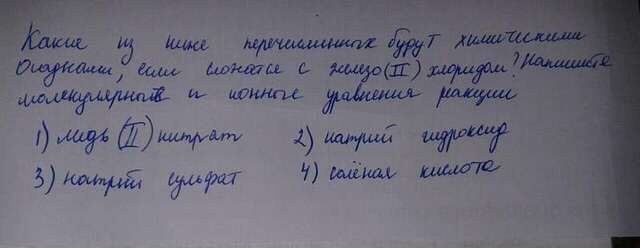 Какие из ниже перечисленных будут химическими
осадками, если смогатсе с железо (II) хлоридом? Напишите
молекулярные и ионные уравнения реакции
1) медь (II) нитрат 2) натрий гидроксид
3) натрий сульфат 4) солёная кислота